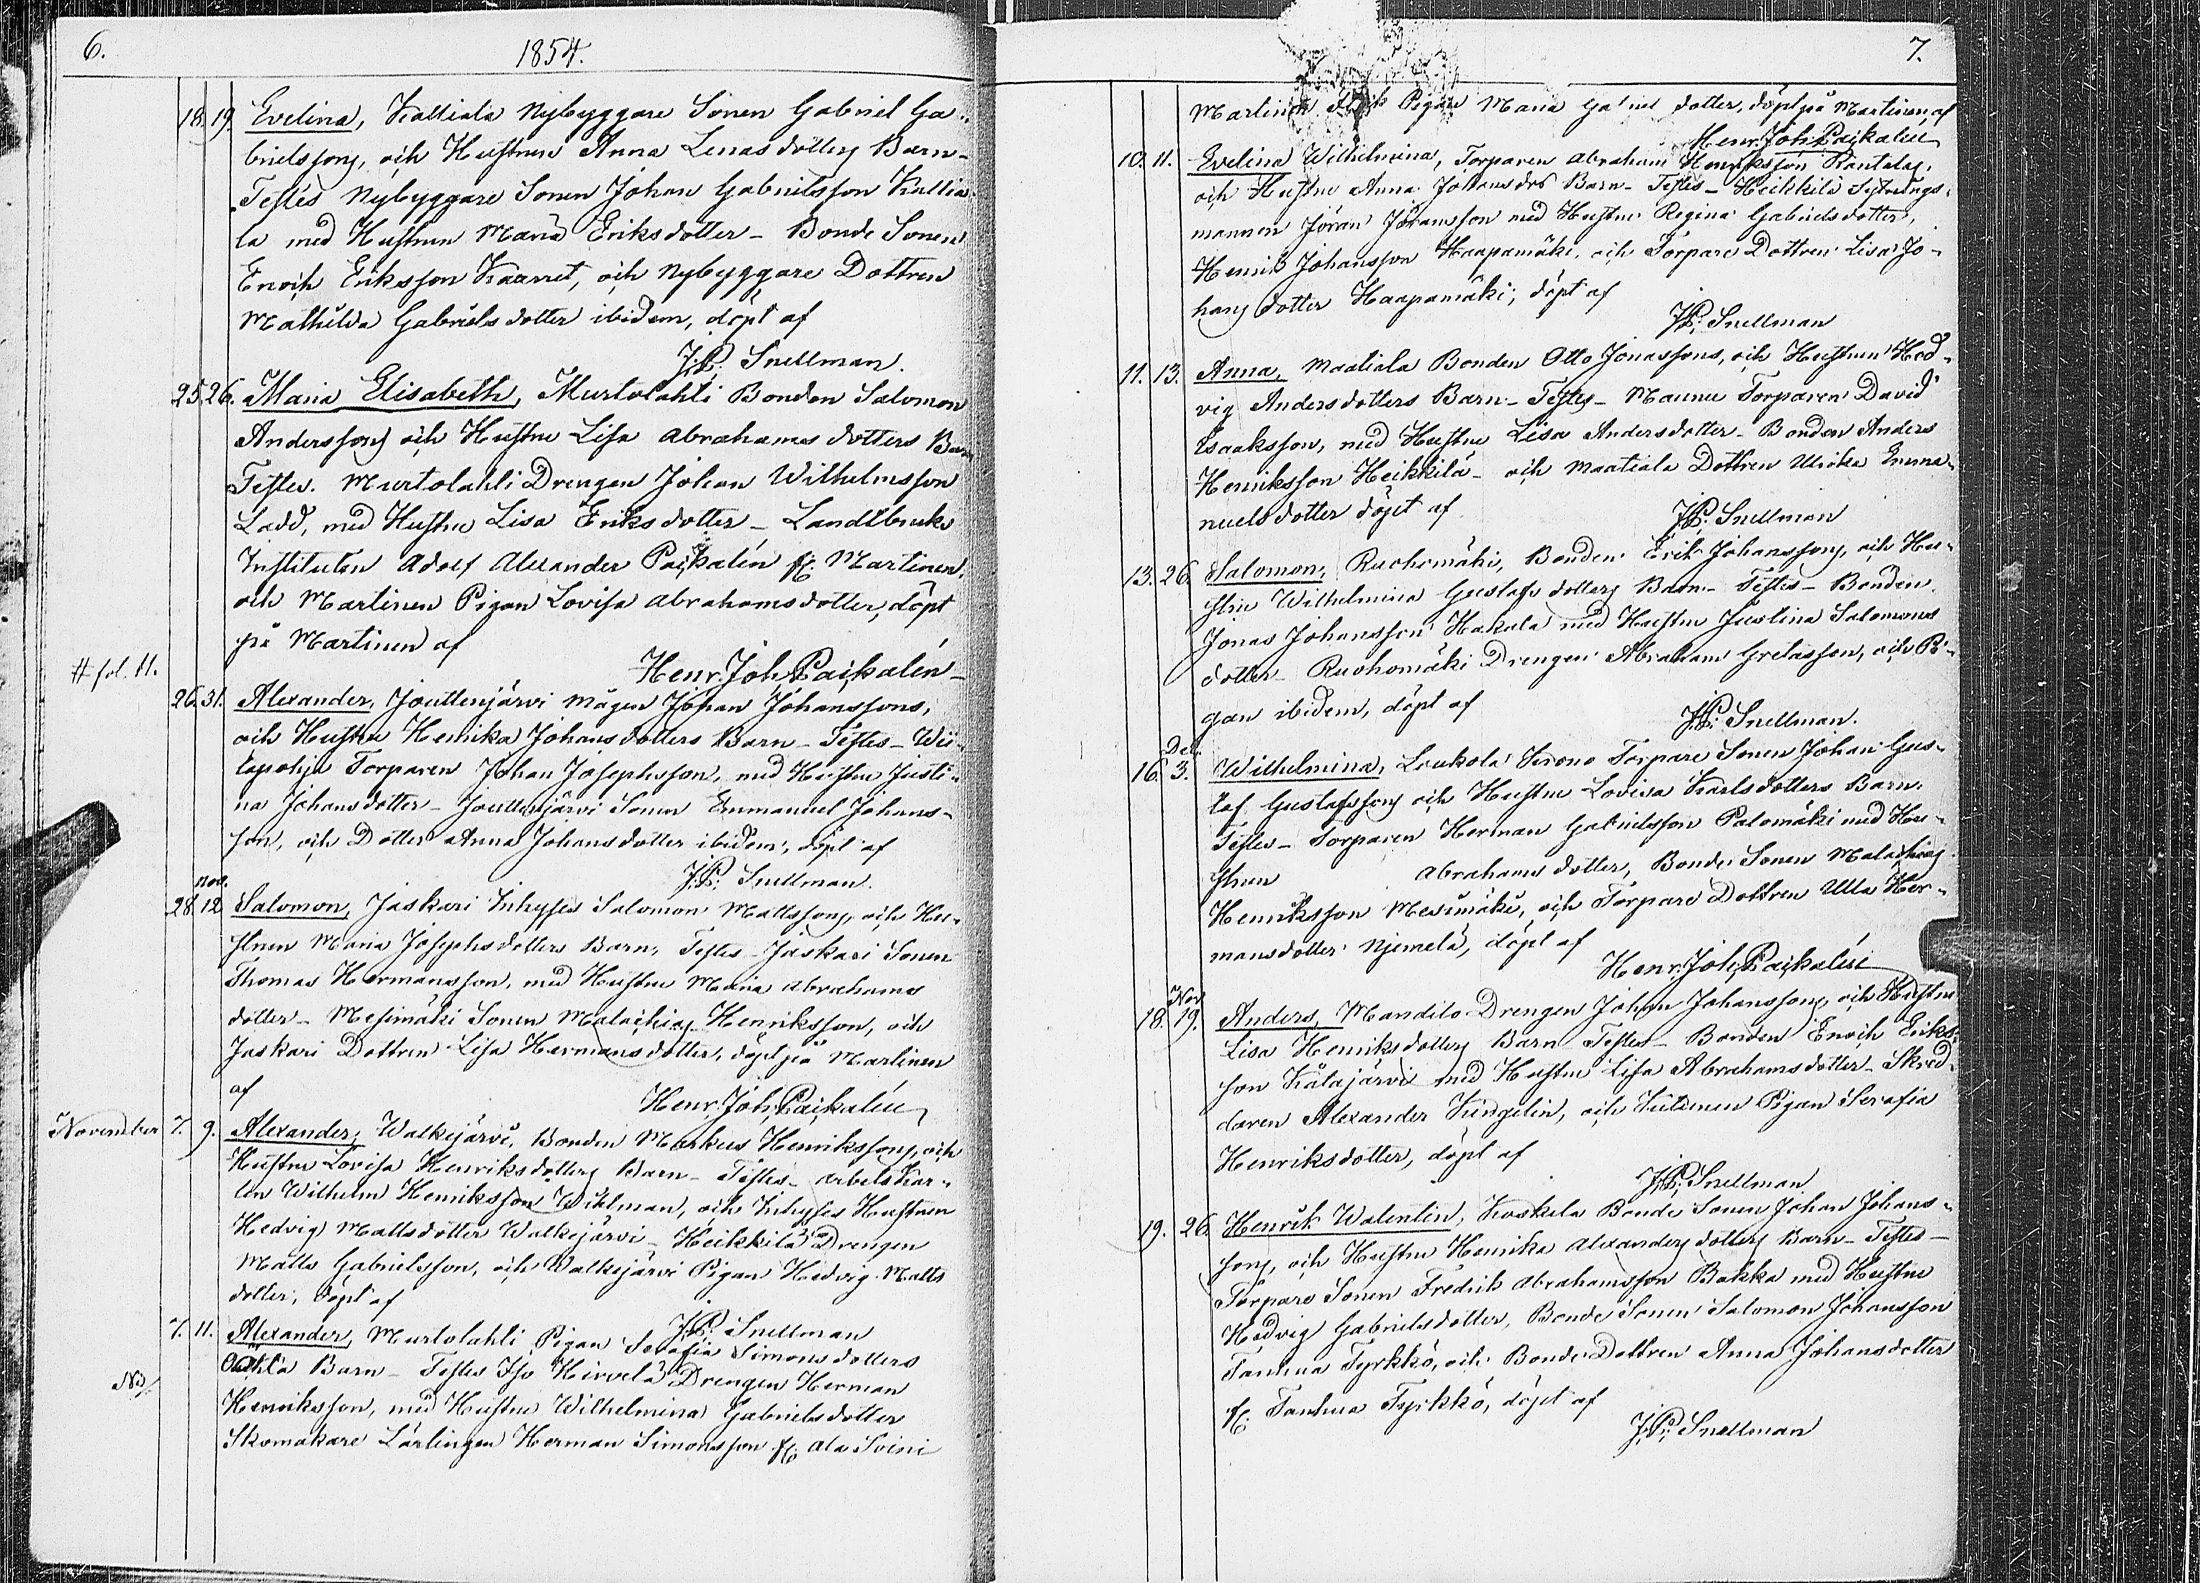 6.
1854.
18. 19. Evelina, Kattiala Nybyggare Sonen Gabriel Ga-
brielssons, och Hustruns Anna Lenas dotters Barn-
Testes Nybyggare Sonen Johan Gabrielsson Kattia-
la med Hustrun Maria Eriksdotter - Bonde Sonen
Enoch Eriksson Kaarret, och Nybyggare Dottren
Mathilda Gabriels dotter ibidem, döpt af
J.P. Snellman.
25. 26. Maria Elisabeth, Murtolahti Bonden Salomon
Anderssons och Hustru Lisa Abrahams dotters Barn
Testes. Murtolahti Drengen Johan Wilhelmsson
Ladd, med Hustru Lisa Eriksdotter - Landtbruks
Instituten Adolf Alexander Paikalén fr. Martinen,
och Martinen Pigan Lovisa Abrahamsdotter, döpt
på Martinen af
Henr. Joh. Paikalén
# fol. 11.
26. 31. Alexander, Jouttenjärvi Mågen Johan Johanssons,
och Hustru Henrika Johansdotters Barn - Testes - Wii-
tapohja Torparen Johan Josephsson, med Hustru Justi-
na Johansdotter - Jouttenjärvi Sonen Emmanuel Johans-
son, och Dotter Anna Johansdotter ibidem, döpt af
J.P. Snellman.
Nov.
28. 12 Salomon, Jaskari Inhyses Salomon Mattssons, och Hu-
strun Maria Josephsdotters Barn, Testes - Jaskari Sonen
Thomas Hermansson, med Hustru Maria Abrahams
dotter - Mesimäki Sonen Malachias Henriksson, och
Jaskari Dottren Lisa Hermansdotter, döpt på Martinen
af
Henr. Joh. Paikalén
November 7. 9. Alexander, Walkejärvi, Bonden Markus Henrikssons, och
Hustru Lovisa Henriksdotters Barn - Testes - Arbetskar-
len Wilhelm Henriksson Wihlman, och Inhyses Hustrun
Hedvig Mattsdotter Walkejärvi - Heikkilä Drengen
Matts Gabrielsson, och Walkejärvi Pigan Hedvig Matts
dotter, döpt af
J.P. Snellman
7. 11. Alexander, Murtolahti Pigan Serafia Simonsdotters
Oäkta Barn - Testes Iso Hirvelä Drengen Herman
Henriksson, med Hustru Wilhelmina Gabrielsdotter
Skomakare Lärlingen Herman Simonsson fr. Ala Soini
7.
Martinen Pigan Maria Gabriels dotter, döpt på Martinen, af
Henr. Joh. Paikalén
10. 11. Evelina Wilhelmina, Torparen Abraham Henriksson Rantalas,
och Hustru Anna Johansdos Barn - Testes - Heikkilä Sytnings-
mannen Jöran Jöransson med Hustru Regina Gabrielsdotter,
Henrik Johansson Haapamäki, och Torpare Dottren Lisa Jo-
hans dotter Haapamäki, döpt af
J.P. Snellman
11. 13. Anna, Maatiala Bonden Otto Jonassons, och Hustrun Hed-
vig Andersdotters Barn - Testes - Maunu Torparen David
Isaaksson, med Hustru Lisa Andersdotter - Bonden Anders
Henriksson Heikkilä - och Maatiala Dottren Ulrika Emma-
nuelsdotter döpt af
J.P. Snellman
13. 26. Salomon, Ruohomäki, Bonden Erik Johanssons, och Hu-
stru Wilhelmina Gustafsdotters Barn - Testes - Bonden
Jonas Johansson Hakala med Hustru Justina Salomons
dotter - Ruohomäki Drengen Abraham Gretasson, och Pi-
gan ibidem, döpt af
J.P. Snellman.
Dec.
16. 3. Wilhelmina, Loukola Krono Torpare Sonen Johan Gus-
taf Gustafssons och Hustru Lovisa Karlsdotters Barn.
Testes - Torparen Herman Gabrielsson Palomäki med Hu-
strun Abrahams dotter, Bonde Sonen Malachias
Henriksson Mesimäki, och Torpare Dottren Ulla Her-
mansdotter Njemelä, döpt af
Henr. Joh. Paikalén
Nov
18. 19. Anders, Mandilo Drengen Johan Johanssons, och Hustru
Lisa Henriksdotters Barn Testes - Bonden Enoch Eriks-
son Kätäjärvi med Hustru Lisa Abrahamsdotter - Skräd-
daren Alexander Kingelin, och Pigan Serafia
Henriksdotter, döpt af
J.P. Snellman
19. 26. Henrik Walentin, Koskela Bonde Sonen Johan Johans-
sons, och Hustru Henrika Alexanders dotters Barn - Testes -
Torpare Sonen Fredrik Abrahamsson Bakka med Hustru
Hedvig Gabrielsdotter, Bonde Sonen Salomon Johansson
Tanhua Tyrkkö, och Bonde Dottren Anna Johansdotter
fr. Tanhua Tyrkkö, döpt af
J.P. Snellman